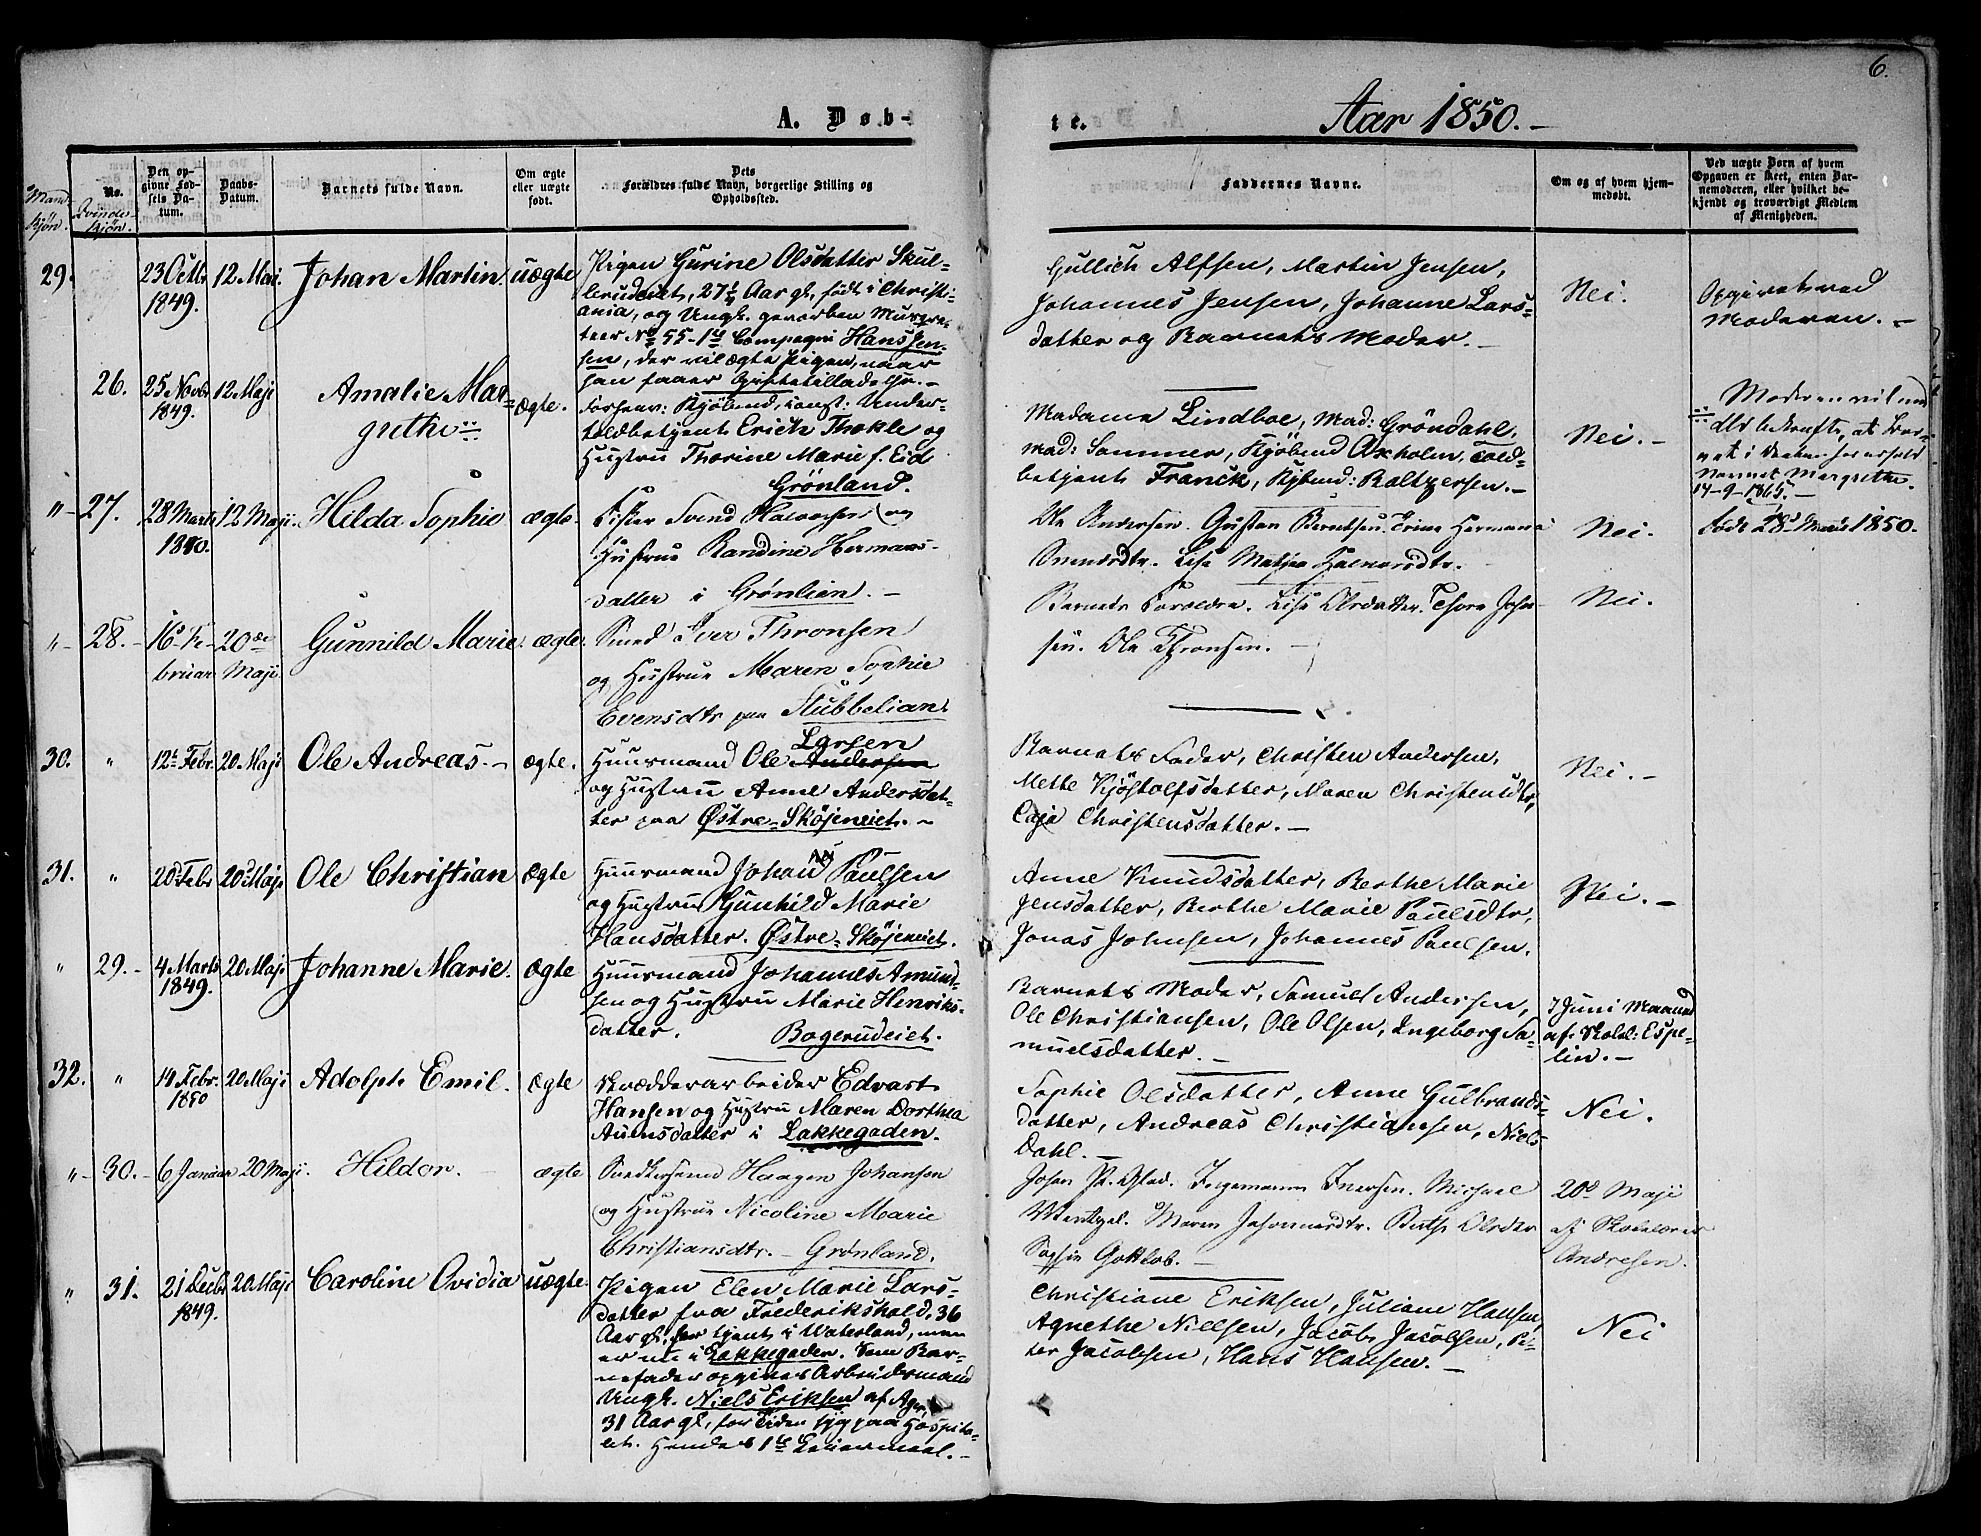 6.
A. Døb-
te.
Aar 1850.-
Mand-
kjøn.
No.
Qvinde-
kjøn.
Den op-
givne Fød-
sels Da-
tum.
Daabs-
Datum.
Barnets fulde Navn.
Om ægte
eller uægte
født.
Dets
Forældres fulde Navn, borgerlige Stilling og
Opholdssted.
Faddernes Navne.
Om og af hvem hjem-
medøbt.
Ved uægte Børn af hvem
Opgaven er skeet, enten Bar-
nemoderen, eller hvilket be-
kjendt og troværdigt Medlem
af Menigheden.
29.
23 Octbr
1849.
12 Mai.
Johan Martin.
uægte
Pigen Gurine Olsdatter Skul-
lerudeiet, 27½ Aar gl., født i Christi-
ania, og Ungk. gevorben Musque-
teer No 55 - 1ste Compagni Hans Jen-
sen, der vil ægte Pigen, naar
han faaer Giftetilladelse.-
Gullich Alfsen, Martin Jensen,
Johannes Jensen, Johanne Lars-
datter og Barnets Moder.-
Nei.
Opgivet ved
Moderen.-
26.
25 Novbr
1849.
12 Maji
Amalie Mar-
grethe
ægte.
Forhenv: Kjøbmd, const: Under-
toldbetjent Erich Thokle og
Hustru Thorine Marie f. Eid
Grönland.
Madame Lindboe, Mad: Gröndahl,
Mad: Sommer, Kjøbmd Axholm, Told-
betjent Franck, Kjbmd: Baltzersen.-
Nei.-
Moderen vil
bekræfte, at Bar-
net i Daaben
Navnet Margrethe.
14-9-1865.-
"- 27.
28 Marts
1850.
12 Maji.
Hilda Sophie
ægte.
Fisker Svend Halvorsen og
Hustrue Randine Hermans-
datter i Grönlien.-
Ole Andersen. Gustav Berntsen. Trine Hermans
Svensdtr. Lise Mathea Halvorsdtr.
Nei.
født 28d Marts 1850.
"- 28.-
16d Fe-
bruar
20de
Maji
Gunnild Marie.
ægte.
Smed Iver Thronsen
og Hustrue Maren Sophie
Evensdtr paa Stubbelian.
Barnets Forældre. Lise Olsdatter. Thore Johan-
sen. Ole Thronsen.-
Nei.
30.
"
12te Febr.
20 Maji
Ole Andreas.-
ægte.
Larsen
Huusmand Ole Andersen
og Hustru Anne Andersdat-
ter paa Østre-Sköjeneiet.-
Barnets Fader, Christen Andersen,
Mette Kjöstolfsdatter, Maren Christensdtr,
Caja Christensdatter.-
Nei.-
31.
"
20d Febr
20d Maji
Ole Christian
ægte
Huusmand Johan Paulsen
og Hustru Gunhild Marie
Hansdatter. Østre-Sköjeneiet.
Anne Knudsdatter, Berthe Marie
Jensdatter, Berthe Marie Paulsdtr,
Jonas Johnsen, Johannes Paulsen.
Nei.-
" 29.-
4 Marts
1849.
20 Maji
Johanne Marie.
ægte
Huusmand Johannes Amund-
sen og Hustru Marie Henriks-
datter. Bogerudeiet.
Barnets Moder, Samuel Andersen,
Ole Christiansen, Ole Olsen, Ingeborg Sa-
muelsdatter.-
7 Juni
af: Skolel: Espe-
lin.-
32.
"
14 Febr.
1850
20 Maji
Adolph Emil.
ægte
Skrædderarbeider Edvart
Hansen og Hustru Maren Dorthea
Auensdatter i Lakkegaden.
Sophie Olsdatter, Anne Gulbrands-
datter, Andreas Christiansen, Niels
Dahl.-
Nei.
"- 30.-
6 Januar
20 Maji.
Hildor.
ægte
Snedkersvend Haagen Johansen
og Hustrue Nicoline Marie
Christiansdtr.- Grönland.
Ingemann Iversen. Michael
Wentzel. Maren Johannesdtr. Berthe Olsdtr
Sophie Gottlob.-
20d Maji
af Skolelærer
Andresen.
" 31.
21 Decbr
1849.
20 Maji
Caroline Ovidia
uægte
Pigen Elen Marie Lars-
datter fra Frederikshald, 36
Aar gl., har tjent i Waterland, men
er nu i Lakkegaden. Som Bar-
nefader opgives Arbeidsmand
Ungk. Niels Eriksen af Ager,
31 Aar gl., for Tiden syg paa Hospita-
let. Hendes 1ste Leiermaal.-
Christiane Eriksen, Juliane Hansen,
Agnethe Nielsen, Jacob Jacobsen, Pe-
ter Jacobsen, Hans Hansen.-
Nei